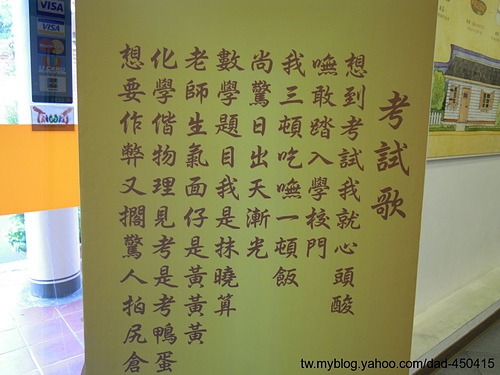 考試歌
想到考試我就心頭酸
嘸敢踏入學校門
我三頓吃嘸一頓飯
尚驚日出天漸光
數學題目我是抹曉算
老師生氣面仔是黃黃黃
化學偕物理見考是考鴨蛋
想要作弊又擱驚人拍尻倉
VISA
VISA
tw.myblog.yahoo.com/dad-450415